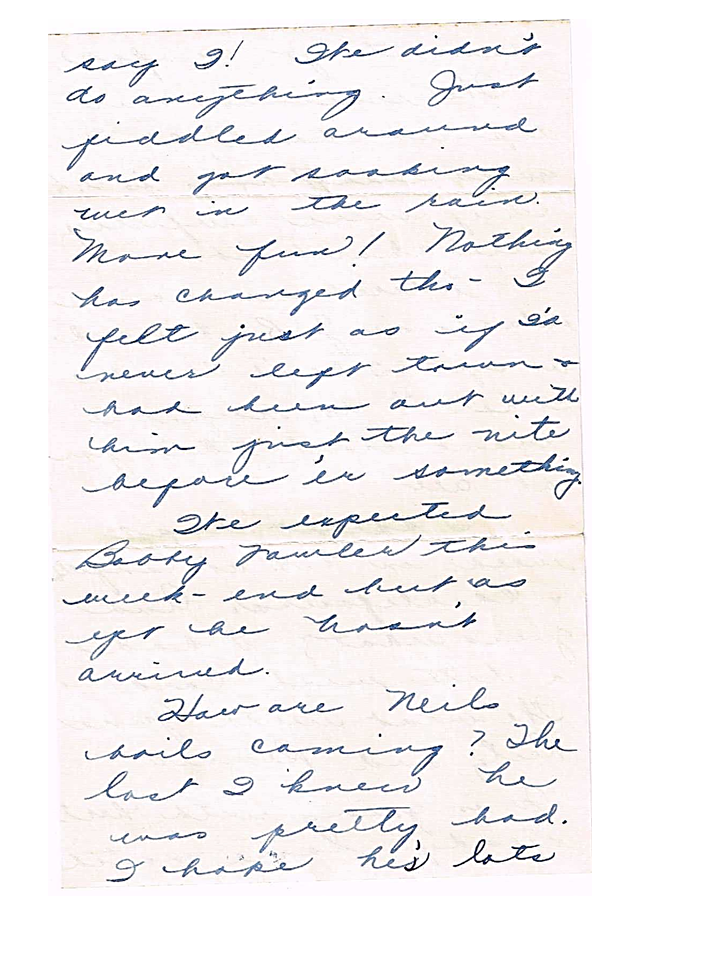 say I! Ike didn't
do anything. Just
fiddled around
and got soaking
wet in the rain.
More fun! Nothing
has changed tho- I
felt just as if I'd
never left town &
had been out with
him just the nite
before 'er something.
Ike expected
Booby Fowler this
week-end but as
yet he hasn't
arrived.
How are Neils
boils coming? The
last I knew he
was pretty bad.
I hope he's lots